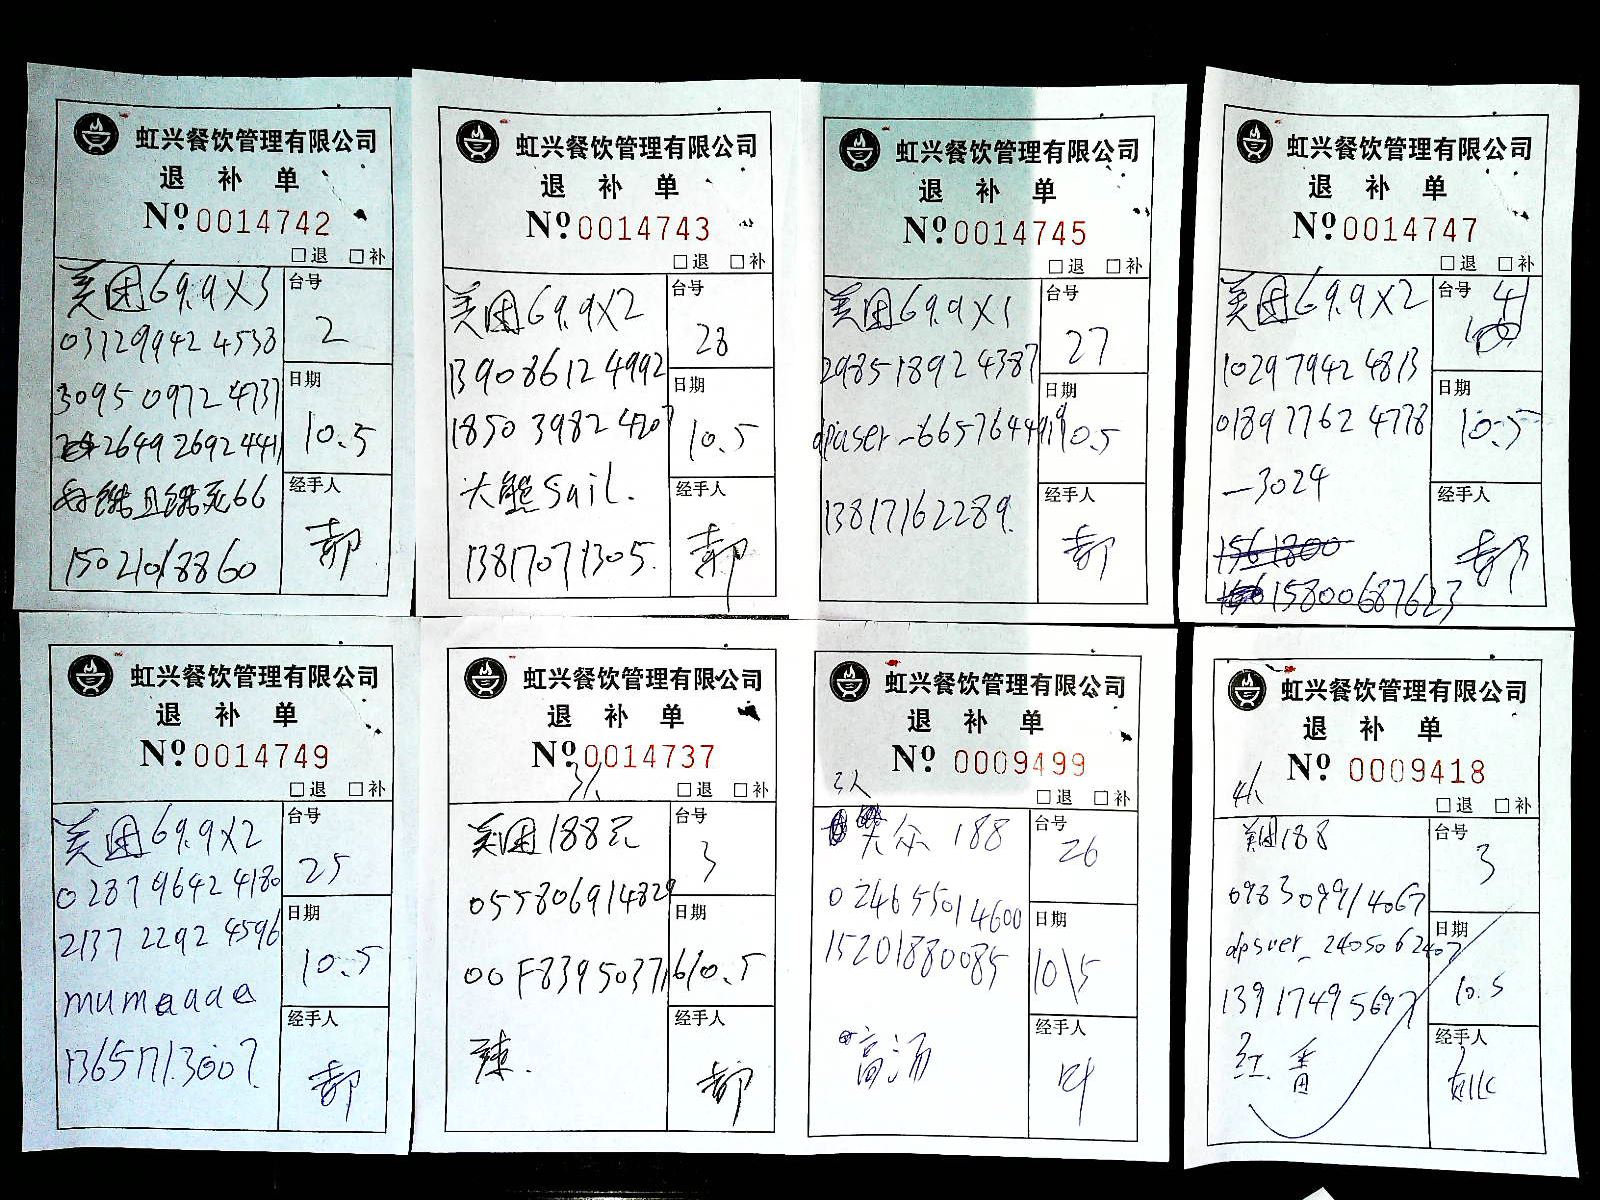 虹兴餐饮管理有限公司
退补单
Nº 0014742
□退 □补
美团69.9X3
台号
2
03129942 4538
3095 0972 4737
2649 2692 4441
日期
10.5
且 死66
经手人
郝
15021018860
虹兴餐饮管理有限公司
退补单
Nº 0014743
□退 □补
美团69.9X2
台号
28
13908612 4992
1850 3982 4207
日期
10.5
大熊sail.
经手人
郝
13817071305.
虹兴餐饮管理有限公司
退补单
Nº 0014745
□退 □补
美团69.9X1
台号
27
29851892 4387
日期
10.5
dpuser_6657644919
经手人
郝
13817162289.
虹兴餐饮管理有限公司
退补单
Nº 0014747
□退 □补
美团69.9X2
台号
4
1029 7942 4813
0189 7762 4778
日期
10.5
—3024
经手人
郝
15800687623
虹兴餐饮管理有限公司
退补单
Nº 0014749
□退 □补
美团69.9X2
台号
25
0287 9642 4180
2137 2292 4596
日期
10.5
mumaaaa
经手人
郝
13651713007.
虹兴餐饮管理有限公司
退补单
Nº 0014737
3人
□退 □补
美团188元
台号
3
055806914829
日期
10.5
00F83950376
经手人
郝
辣.
虹兴餐饮管理有限公司
退补单
Nº 0009499
3人
□退 □补
大众 188
台号
26
024655014600
15201880085
日期
10\5
高汤
经手人
叶
虹兴餐饮管理有限公司
退补单
Nº 0009418
4人
□退 □补
美团188
台号
3
098309914067
dpsuer_2405062407
日期
10.5
13917495697
经手人
红.番